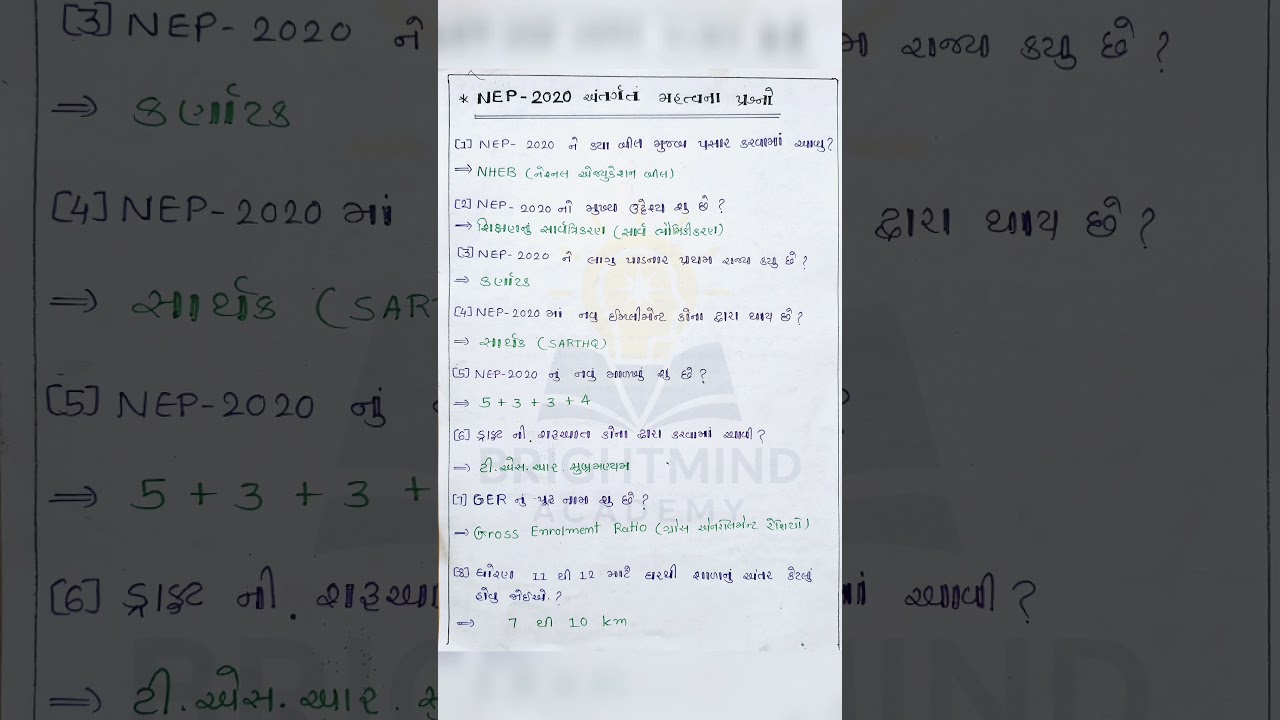 * NEP-2020 અંતર્ગત મહત્વના પ્રશ્નો
[1] NEP- 2020 ને ક્યા બીલ મુજબ પસાર કરવામાં આવ્યુ?
⇒ NHEB (નેશનલ એજ્યુકેશન બીલ)
[2] NEP-2020નો મુખ્ય ઉદ્દેશ્ય શુ છે?
→ શિક્ષણનું સાર્વત્રિકરણ (સાર્વ ભૌમિકીકરણ)
[3] NEP-2020 ને લાગુ પાડનાર પ્રથમ રાજ્ય કયુ છે?
⇒ કર્ણાટક
[4] NEP-2020માં નવુ ઈમ્પ્લીમેન્ટ કોના દ્વારા થાય છે?
⇒ સાર્થક (SARTHQ)
[5] NEP-2020 નુ નવુ માળખુ શુ છે?
⇒ 5+3+3+4
[6] ડ્રાફ્ટ ની શરૂઆત કોના દ્વારા કરવામાં આવી?
⇒ ટી.એસ.આર.સુબ્રમણ્યમ
[7] GER નું પુરુ નામ શુ છે?
→ Gross Enrolment Ratio (ગ્રોસ એનરોલમેન્ટ રેશિયો)
[8] ધોરણ 11 થી 12 માટે ઘરથી શાળાનું અંતર કેટલું
હોવુ જોઈએ.?
⇒ 7 થી 10 km
BRIGHTMIND
ACADEMY
[3] NEP-2020 ને
રાજ્ય કયુ છે?
⇒ કર્ણાટક
[4] NEP-2020માં
દ્વારા થાય છે?
⇒ સાર્થક (SAR
[5] NEP-2020 નું
⇒ 5+3+3+
[6] ડ્રાફ્ટ ની. શરૂઆ
માં આવી?
⇒ ટી.એસ.આર.